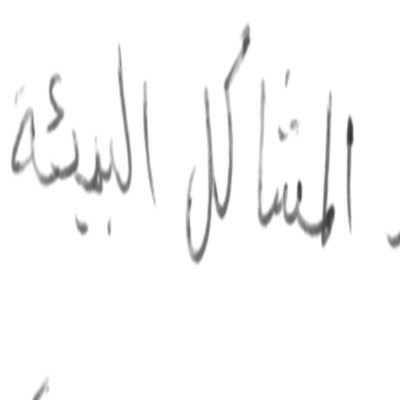 المشاكل البيئة